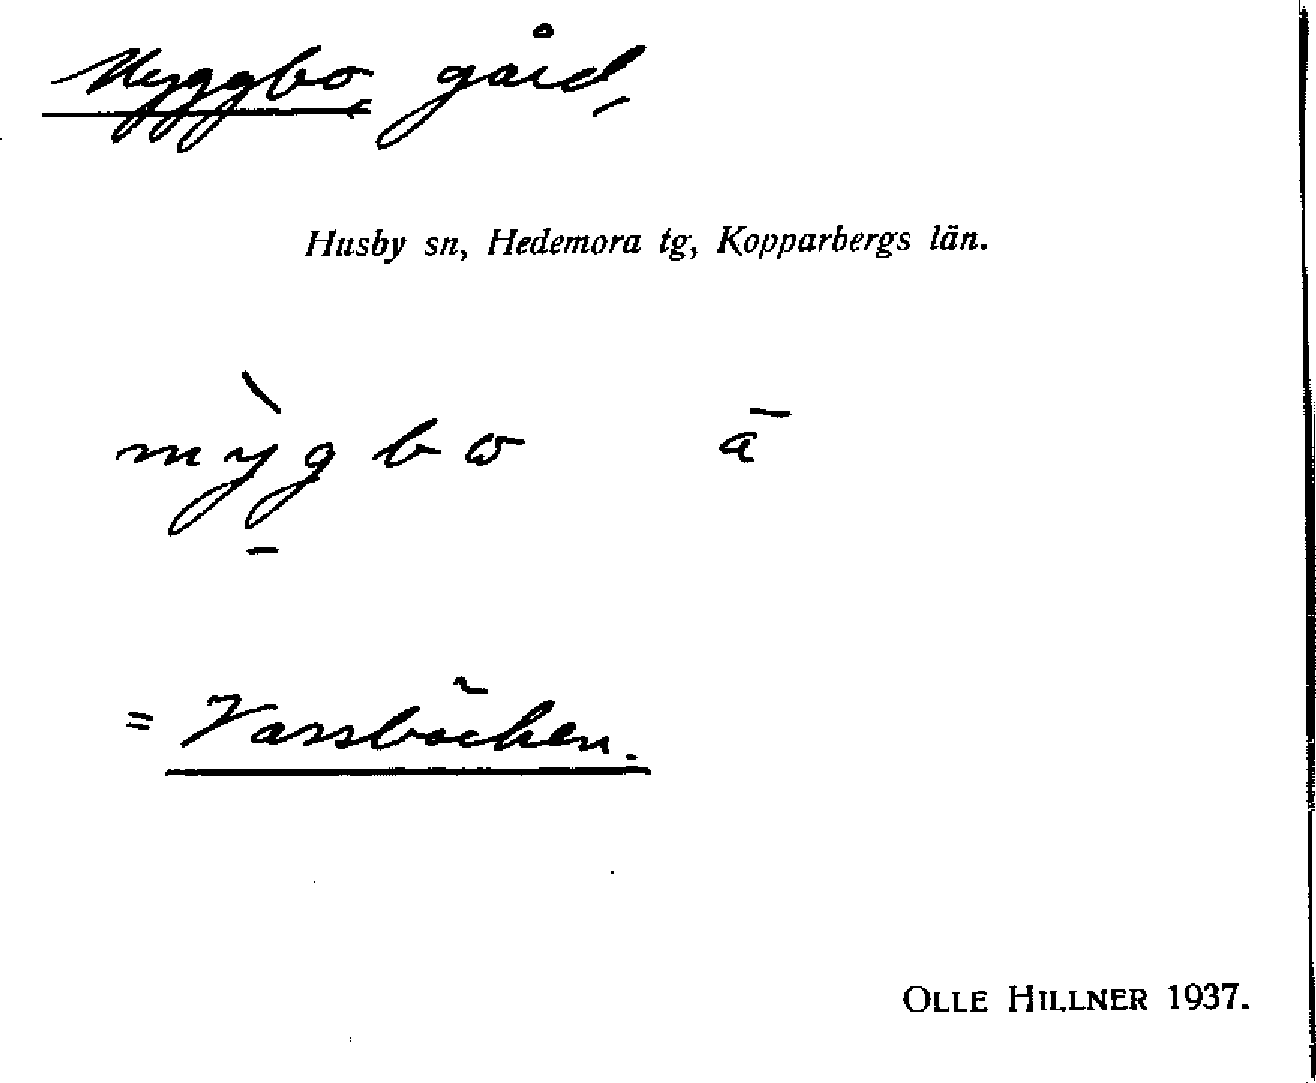 Myggbo, gård,
Husby sn, Hedemora tg, Kopparbergs län.
mỳg̱bω ā
= Varsbäcken.
OLLE HILLNER 1937.